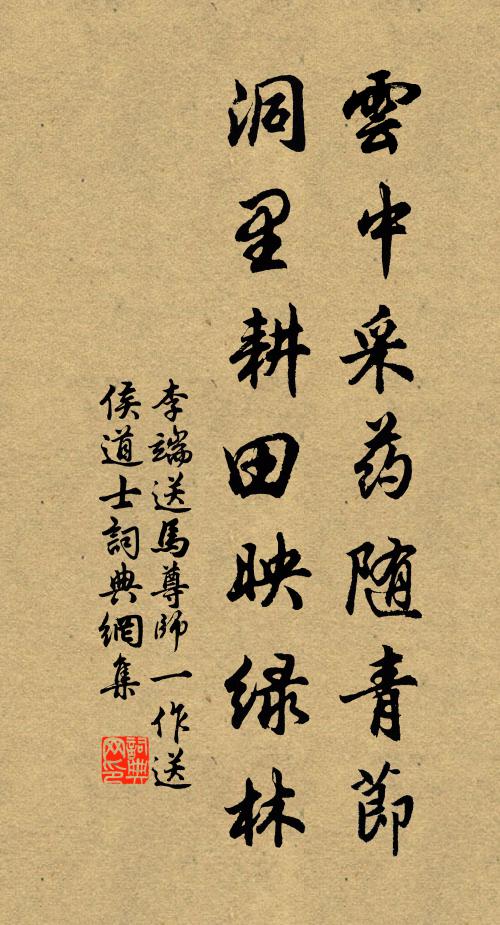 雲中采药随青節
洞里耕田映绿林
李端送馬尊師一作送
侯道士詞典網集
詞典网印